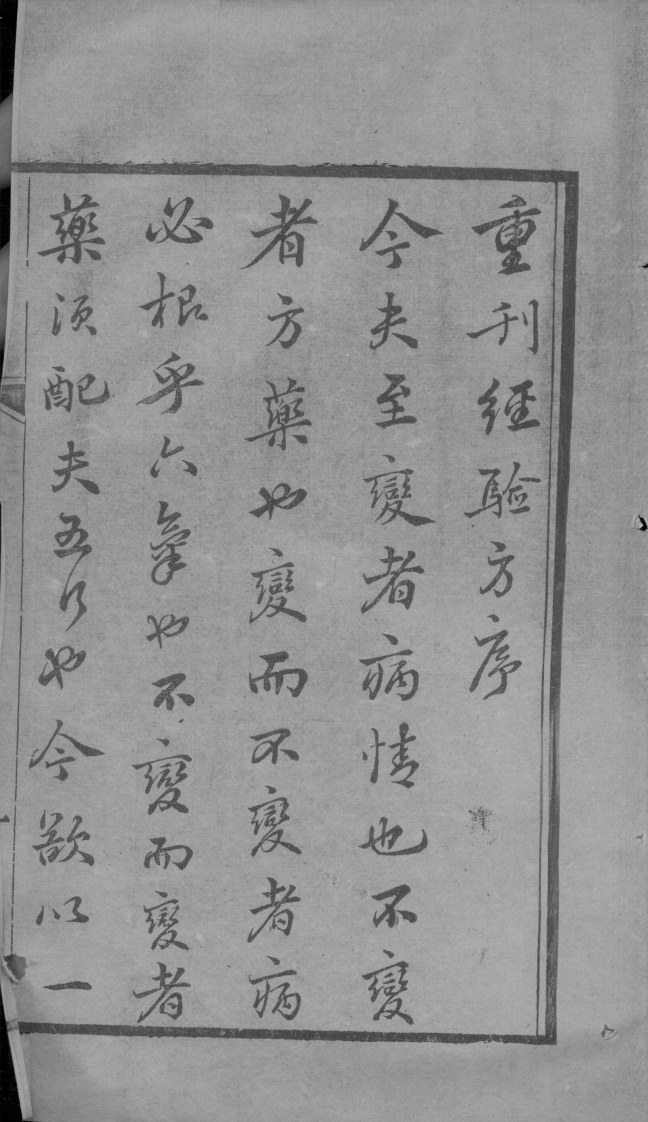 重刋經驗方序
今夫至變者病情也不變
者方藥也變而不變者病
必根乎六氣也不變而變者
藥須配夫五行也今欲以一